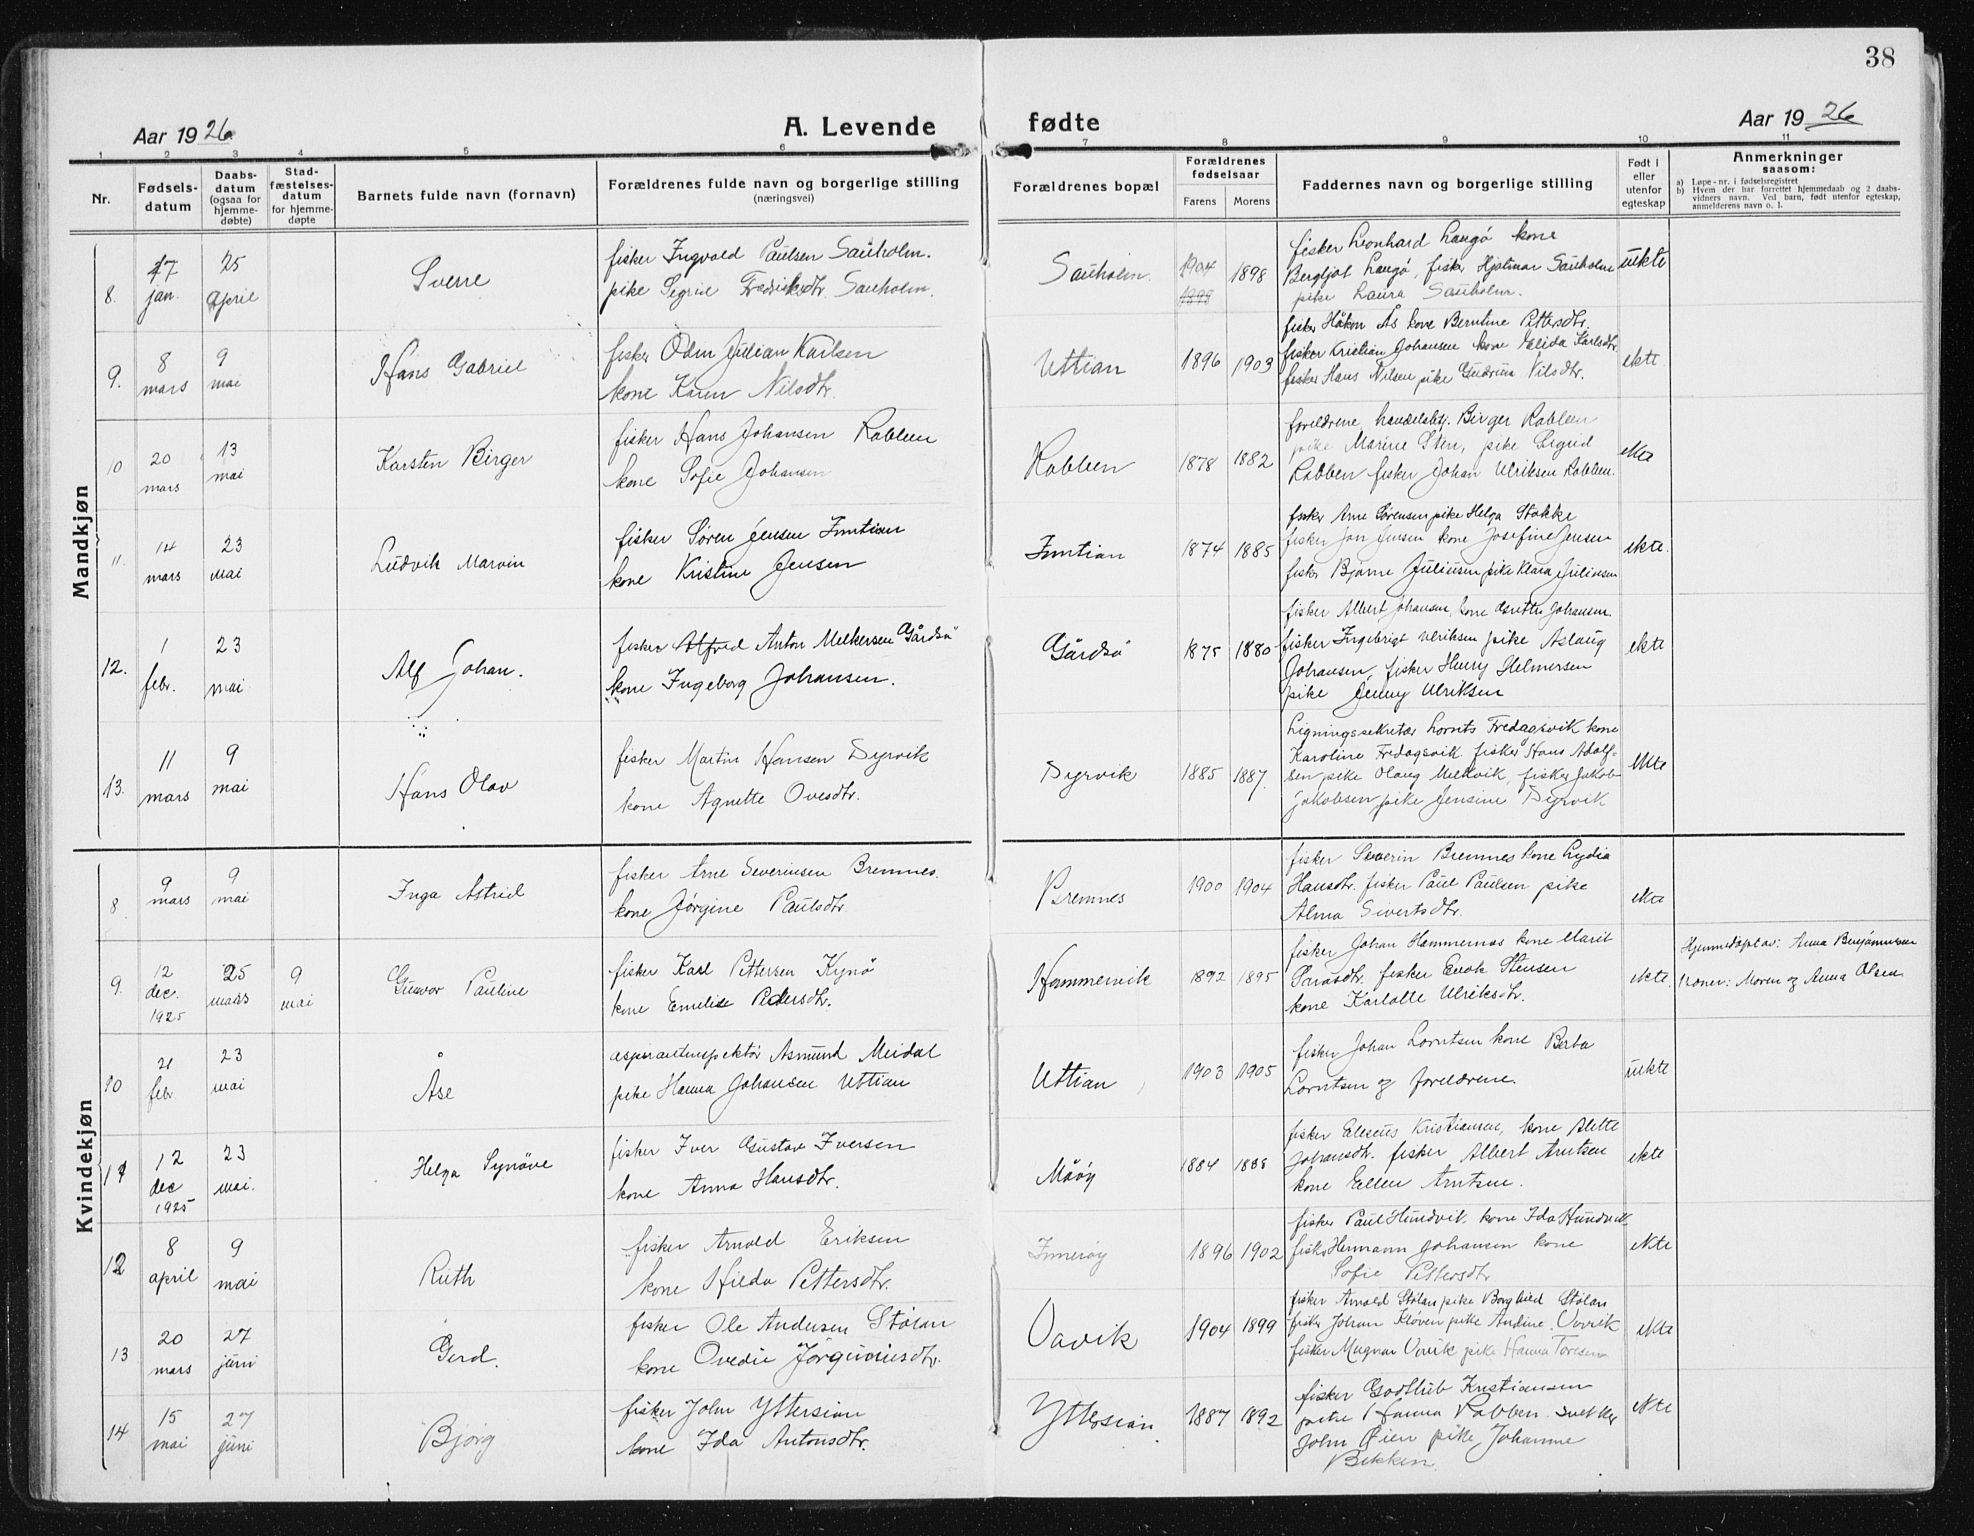 38
Aar 1926
A. Levende fødte
Aar 1926
1 2 3 4 5 6 7 8 9 10 11
Nr.
Fødsels-
datum
Daabs-
datum
(ogsaa for
hjemme-
døbte)
Stad-
fæstelses-
datum
for hjemme-
døpte
Barnets fulde navn (fornavn)
Forældrenes fulde navn og borgerlige stilling
(næringsvei)
Forældrenes bopæl
Forældrenes
fødselsaar
Farens Morens
Faddernes navn og borgerlige stilling
Født i
eller
utenfor
egteskap
Anmerkninger
saasom:
a) Løpe-nr. i fødselsregistret
b) Hvem der har forrettet hjemmedaab og 2 daabs-
vidners navn. Ved barn, født utenfor egteskap,
anmelderens navn o. l.
Mandkjøn
8.
17
jan.
25
april
Sverre
fisker Ingvald Paulsen Sauholm.
pike Sigrid Fredriksdtr. Sauholm.
Sauholm.
1904
1898
1898
fisker Leonhard Langø kone
Bergljot Langø, fisker Hjalmar Sauholm
pike Laura Sauholm.
uekte
9.
8
mars
9
mai
Hans Gabriel
fisker Odin Julian Karlsen
kone Karen Nilsdtr.
Uttian
1896
1903
fisker Håkon Ås kone Berntine Pettersdtr.
fisker Kristian Johansen kone Elida Karlsdtr.
fisker Hans Nilsen pike Gudrun Nilsdtr.
ekte
10
20
mars
13
mai
Karsten Birger
fisker Hans Johansen Rabben
kone Sofie Johansen
Rabben
1878
1882
foreldrene, handelsbtj. Birger Rabben
pike Marine Sten, pike Sigrid
Rabben fisker Johan Ulriksen Rabben.
ekte
11.
14
mars
23
mai
Ludvik Marvin
fisker Søren Jensen Inntian
kone Kristine Jensen
Inntian
1874
1885
fisker Arne Sørensen pike Helga Stokke
fisker Jon Jensen kone Josefine Jensen
fisker Bjarne Juliusen pike Klara Juliusen
ekte.
12.
1
febr.
23
mai
Alf Johan.
fisker Alfred Anton Melkersen Gårdsø
kone Ingeborg Johansen.
Gårdsø
1875
1880
fisker Albert Johansen, kone Anette Johansen
fisker Ingebrigt Ulriksen pike Aslaug
Johansen, fisker Henry Helmersen
pike Jenny Ulriksen
ekte
13.
11
mars
9
mai
Hans Olav
fisker Martin Hansen Dyrvik
kone Agnette Ovesdtr.
Dyrvik
1885
1887.
Ligningssekretær Lornts Fredagsvik kone
Karoline Fredagsvik fisker Hans Adolf-
sen pike Olaug Melkvik, fisker Jakob
Jakobsen pike Jensine Dyrvik
ekte
Kvindekjøn
8
9
mars
9
mai
Inga Astrid
fisker Arne Severinsen Bremnes.
kone Jørgine Paulsdtr.
Bremnes
1900
1904
fisker Severin Bremnes kone Lydia
Hansdtr. fisker Paul Paulsen pike
Alma Sivertsdtr.
ekte
9.
12
dec.
1925
25
mars
9
mai
Gunvor Pauline
fisker Karl Pettersen Kynø
kone Emelie Pedersdtr.
Hammervik
1892
1895
fisker Johan Hammernas kone Marit
Larsdtr. fisker Enok Stensen
kone Karlotte Ulriksdtr.
ekte.
Hjemmedøpt av: Anna Benjaminsen
vitner: Moren og Anna Olsen
10
21
febr
23
mai
Åse
aspirantinspektør Asmund Meidal
pike Hanna Johansen Uttian
Uttian
1903
1905
fisker Johan Lorntsen kone Berta
Lorntsen og foreldrene.
uekte
11
12
dec
1925
23
mai.
Helga Synøve
fisker Iver Gustav Iversen
kone Anna Hansdtr.
Måøy
1884
1888
fisker Eliseus Kristiansen, kone Alette
Johansdtr. fisker Albert Arntsen
kone Ellen Arntsen.
ekte
12
8
april
9
mai
Ruth
fisker Arnold Eriksen
kone Hilda Pettersdtr.
Innerøy
1896
1902
fisker Paul Hundvik, kone Ida Hundvik
fisker Hermann Johansen kone
Sofie Pettersdtr
ekte
13
20
mars
27
juni
Gerd.
fisker Ole Andersen Stølan
kone Ovedie Jørginiusdtr.
Vavik
1904
1899
fisker Arnold Stølan pike Borghild Stølan
fisker Johan Kløven pike Andine Vavik
fisker Magnar Vavik pike Hanna Toresen
ekte
14
15
mai
27
juni
Bjørg
fisker John Yttersian
kone Ida Antonsdtr.
Yttersian.
1887
1892
fisker Godtlub Kristiansen
pike Hanna Rabben. snekker
John Øien pike Johanne
Bekken.
ekte